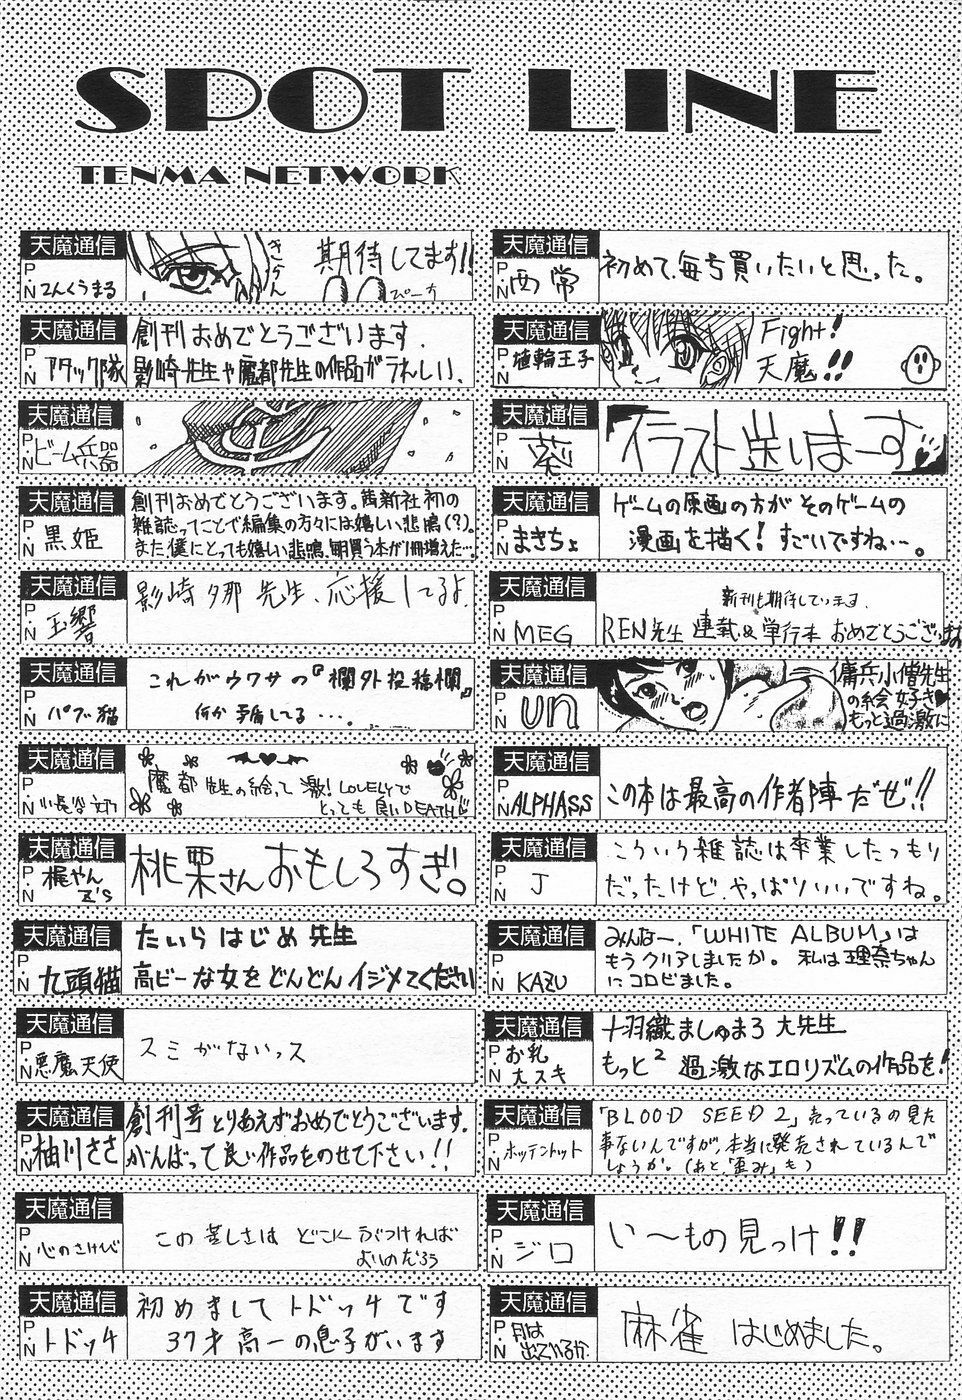 SPOT LINE
TENMA NETWORK
天魔通信
P.N てんくうまる
きかん
期待してます!!
ぴーち
天魔通信
P.N アタック隊
創刊おめでとうございます.
影崎先生や魔都先生の作品がうれしい.
天魔通信
P.N ビーム兵器
天魔通信
P.N 黒姫
創刊おめでとうございます。茜新社初の
雑誌ってことで編集の方々には嬉しい悲鳴(?)。
また僕にとっても嬉しい悲鳴、毎月買う本が1冊増えた…
天魔通信
P.N 玉響
影崎夕那先生、応援してるよ.
天魔通信
P.N パブ猫
これがウワサの『欄外投稿欄』
何か矛盾してる・・・。
天魔通信
P.N 小長谷
魔都先生の絵って激!LOVELYで
とっても良いDEATH!!
天魔通信
P.N 梶やんZ's
桃栗さんおもしろすぎ。
天魔通信
P.N 九頭猫
たいらはじめ先生
高ビーな女をどんどんイジメてください
天魔通信
P.N 悪魔天使
スミがないっス
天魔通信
P.N 柚川ささ
創刊号とりあえずおめでとうございます.
がんばって良い作品をのせて下さい!!
天魔通信
P.N 心のさけび
この苦しさはどこにぶつければ
よいのだろう
天魔通信
P.N トドッチ
初めまして トドッチです
37才高一の息子がいます
天魔通信
P.N 西常
初めて、毎号買いたいと思った。
天魔通信
P.N 埴輪王子
Fight!
天魔!!
天魔通信
P.N 葵
イラスト送りまーす
天魔通信
P.N まきちょ
ゲームの原画の方がそのゲームの
漫画を描く!すごいですね…。
天魔通信
P.N MEG
新刊も期待しています.
REN先生 連載&単行本 おめでとうございます
天魔通信
P.N un
傭兵小僧先生
の絵好き♥
もっと過激に
天魔通信
P.N ALPHASS
この本は最高の作者陣だぜ!!
天魔通信
P.N J
こういう雑誌は卒業したつもり
だったけど、やっぱりいいですね。
天魔通信
P.N KAZU
みんなー、「WHITE ALBUM」は
もうクリアしましたか。私は理奈ちゃん
にコロビました。
天魔通信
P.N お乳大スキ
十羽織ましゅまろ大先生
もっと² 過激なエロリズムの作品を!
天魔通信
P.N ホッテントット
「BLOOD SEED 2」売っているの見た
事ないんですが、本当に発売されているんで
しょうか。(あと、「歪み」も)
天魔通信
P.N ジロ
い〜もの見っけ!!
天魔通信
P.N 月は出ているか
麻雀はじめました。